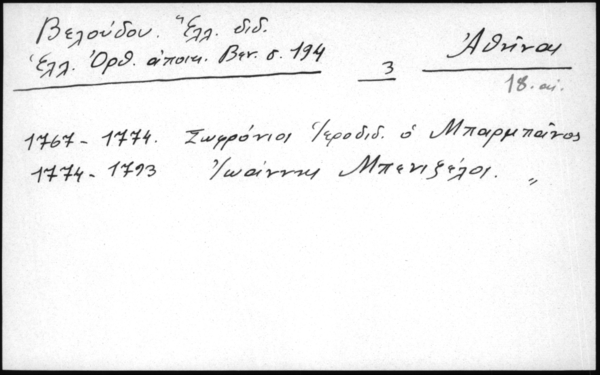 Βελούδου. Ἕλλ. διδ.
Ἑλλ. Ὀρθ. ἀποικ. Βεν. σ. 194
3
Ἀθῆναι
18. αἰ.
1767 - 1774. Σωφρόνιος Ἱεροδιδ. ὁ Μπαρμπᾶνος
1774 - 1793 Ἰωάννης Μπενιζέλος. "